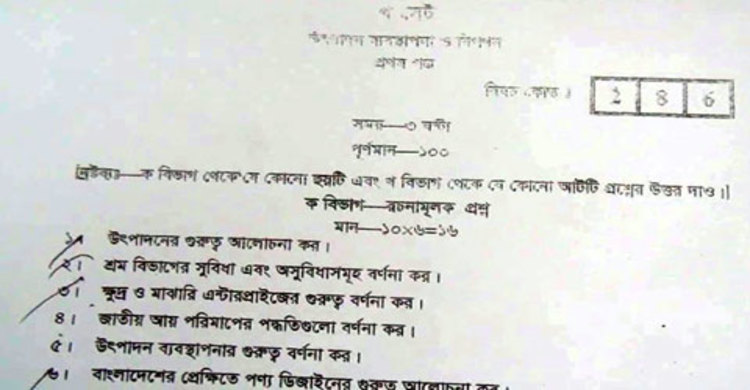 উৎপাদন ব্যবস্থাপনা ও বিপণন
প্রথম পত্র
বিষয় কোড : 286
সময়—৩ ঘণ্টা
পূর্ণমান—১০০
[দ্রষ্টব্য—ক বিভাগ থেকে যে কোনো ছয়টি এবং খ বিভাগ থেকে যে কোনো আটটি প্রশ্নের উত্তর দাও।]
ক বিভাগ—রচনামূলক প্রশ্ন
মান—১০×৬=১৬
১। উৎপাদনের গুরুত্ব আলোচনা কর।
২। শ্রম বিভাগের সুবিধা এবং অসুবিধাসমূহ বর্ণনা কর।
৩। ক্ষুদ্র ও মাঝারি এন্টারপ্রাইজের গুরুত্ব বর্ণনা কর।
৪। জাতীয় আয় পরিমাপের পদ্ধতিগুলো বর্ণনা কর।
৫। উৎপাদন ব্যবস্থাপনার গুরুত্ব বর্ণনা কর।
৬। বাংলাদেশের প্রেক্ষিতে পণ্য ডিজাইনের গুরুত্ব আলোচনা কর।